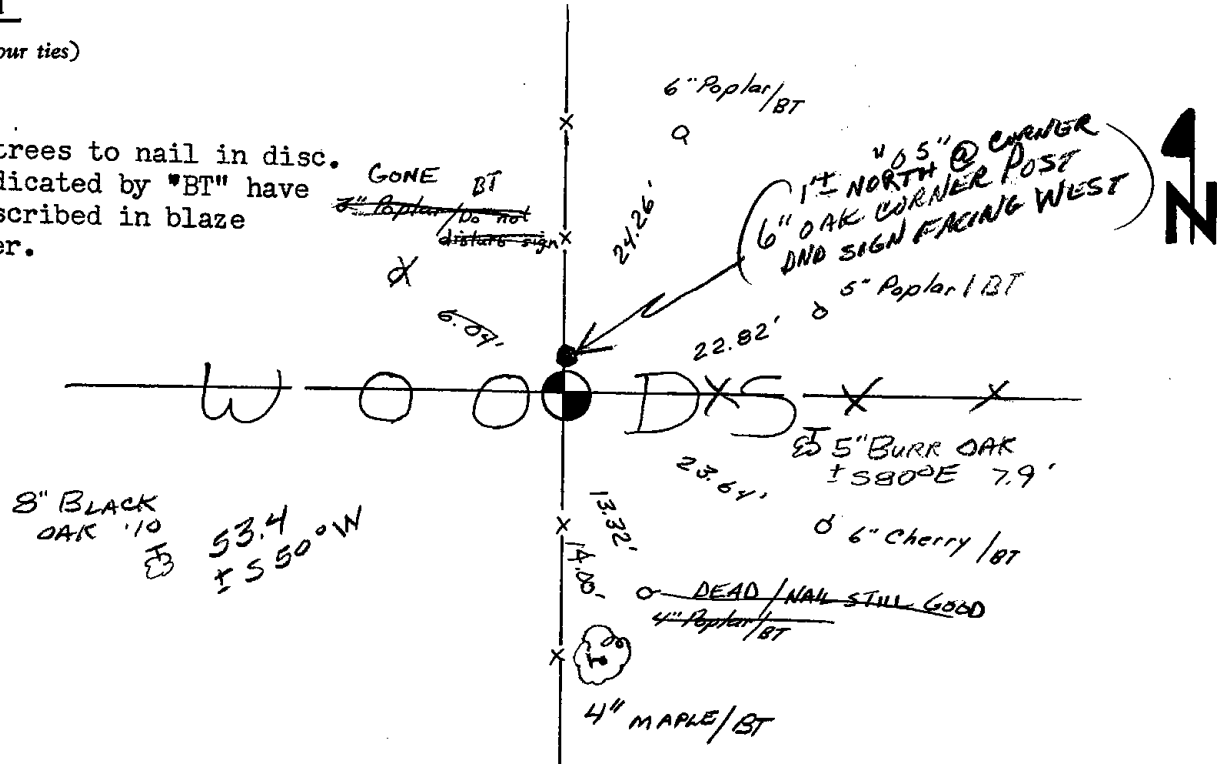 our ties)
trees to nail in disc.
dicated by "BT" have
scribed in blaze
er.
GONE BT
Poplar/Do not
disturb sign
6.04'
6" Poplar/BT
24.26'
"05" @ CORNER
1'± NORTH
6" OAK CORNER POST
DND SIGN FACING WEST
N
5" Poplar/BT
22.82'
WOODS
5" BURR OAK
± S80°E 7.9'
23.64'
6" Cherry/BT
8" BLACK
OAK '10
53.4
± S50°W
13.32'
14.00'
DEAD/NAIL STILL GOOD
4" Poplar/BT
4" MAPLE/BT